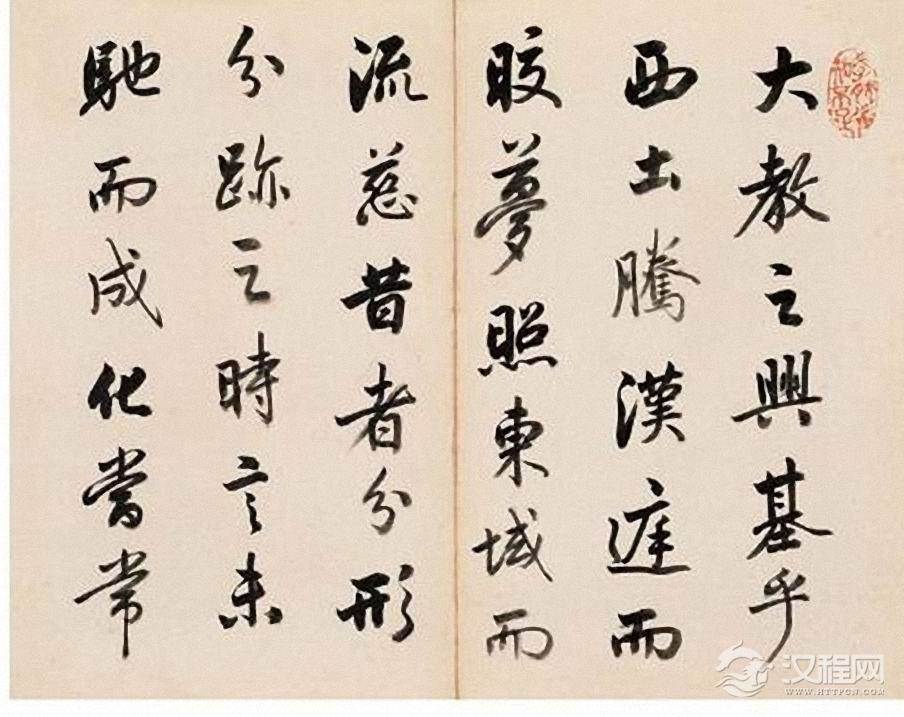 大教之興基乎
西土騰漢庭而
皎夢照東域而
流慈昔者分形
分跡之時言未
馳而成化當常
汉程网
WWW.HTTPCN.COM